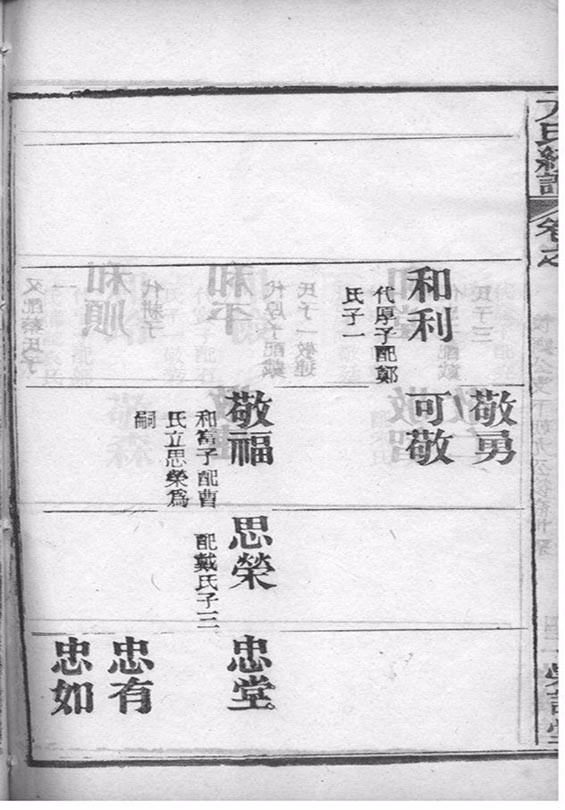 氏經譜
卷之
和利
代厚子配鄭
氏子一
敬勇
可敬
敬福
和富子配曹
氏立思榮爲
嗣
思榮
配戴氏子三
忠堂
忠有
忠如